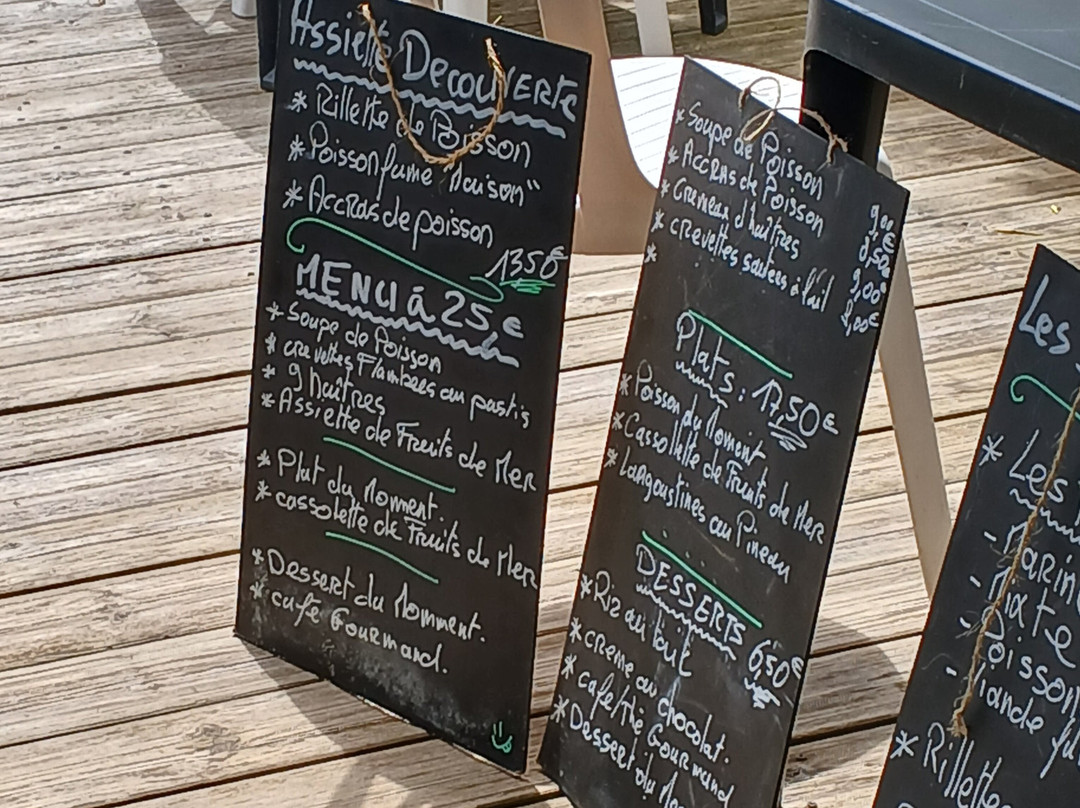 Assiette Decouverte
* Rillette de Poisson
* Poisson fume "Maison"
* Accras de poisson
1350€
MENU à 25€
* Soupe de Poisson
* crevettes Flambees au pastis
* 9 Huîtres
* Assiette de Fruits de Mer
* Plat du Moment.
* cassolette de Fruits de Mer
* Dessert du Momment.
* café Gourmand.
* Soupe de Poisson 9,00€
* Accras de Poisson 8,50€
* Cremeux d'huîtres 9,00€
* crevettes sautees à l'ail 8,00€
*
Plats : 17,50€
* Poisson du Moment
* Cassollette de Fruits de Mer
* Langoustines au Pineau
DESSERTS 6,50€
* Riz au lait
* creme au chocolat.
* cafe/thé Gourmand
* Dessert du
Les
* Les
-
- Mixte
- Poisson
- Viande
* Rillette